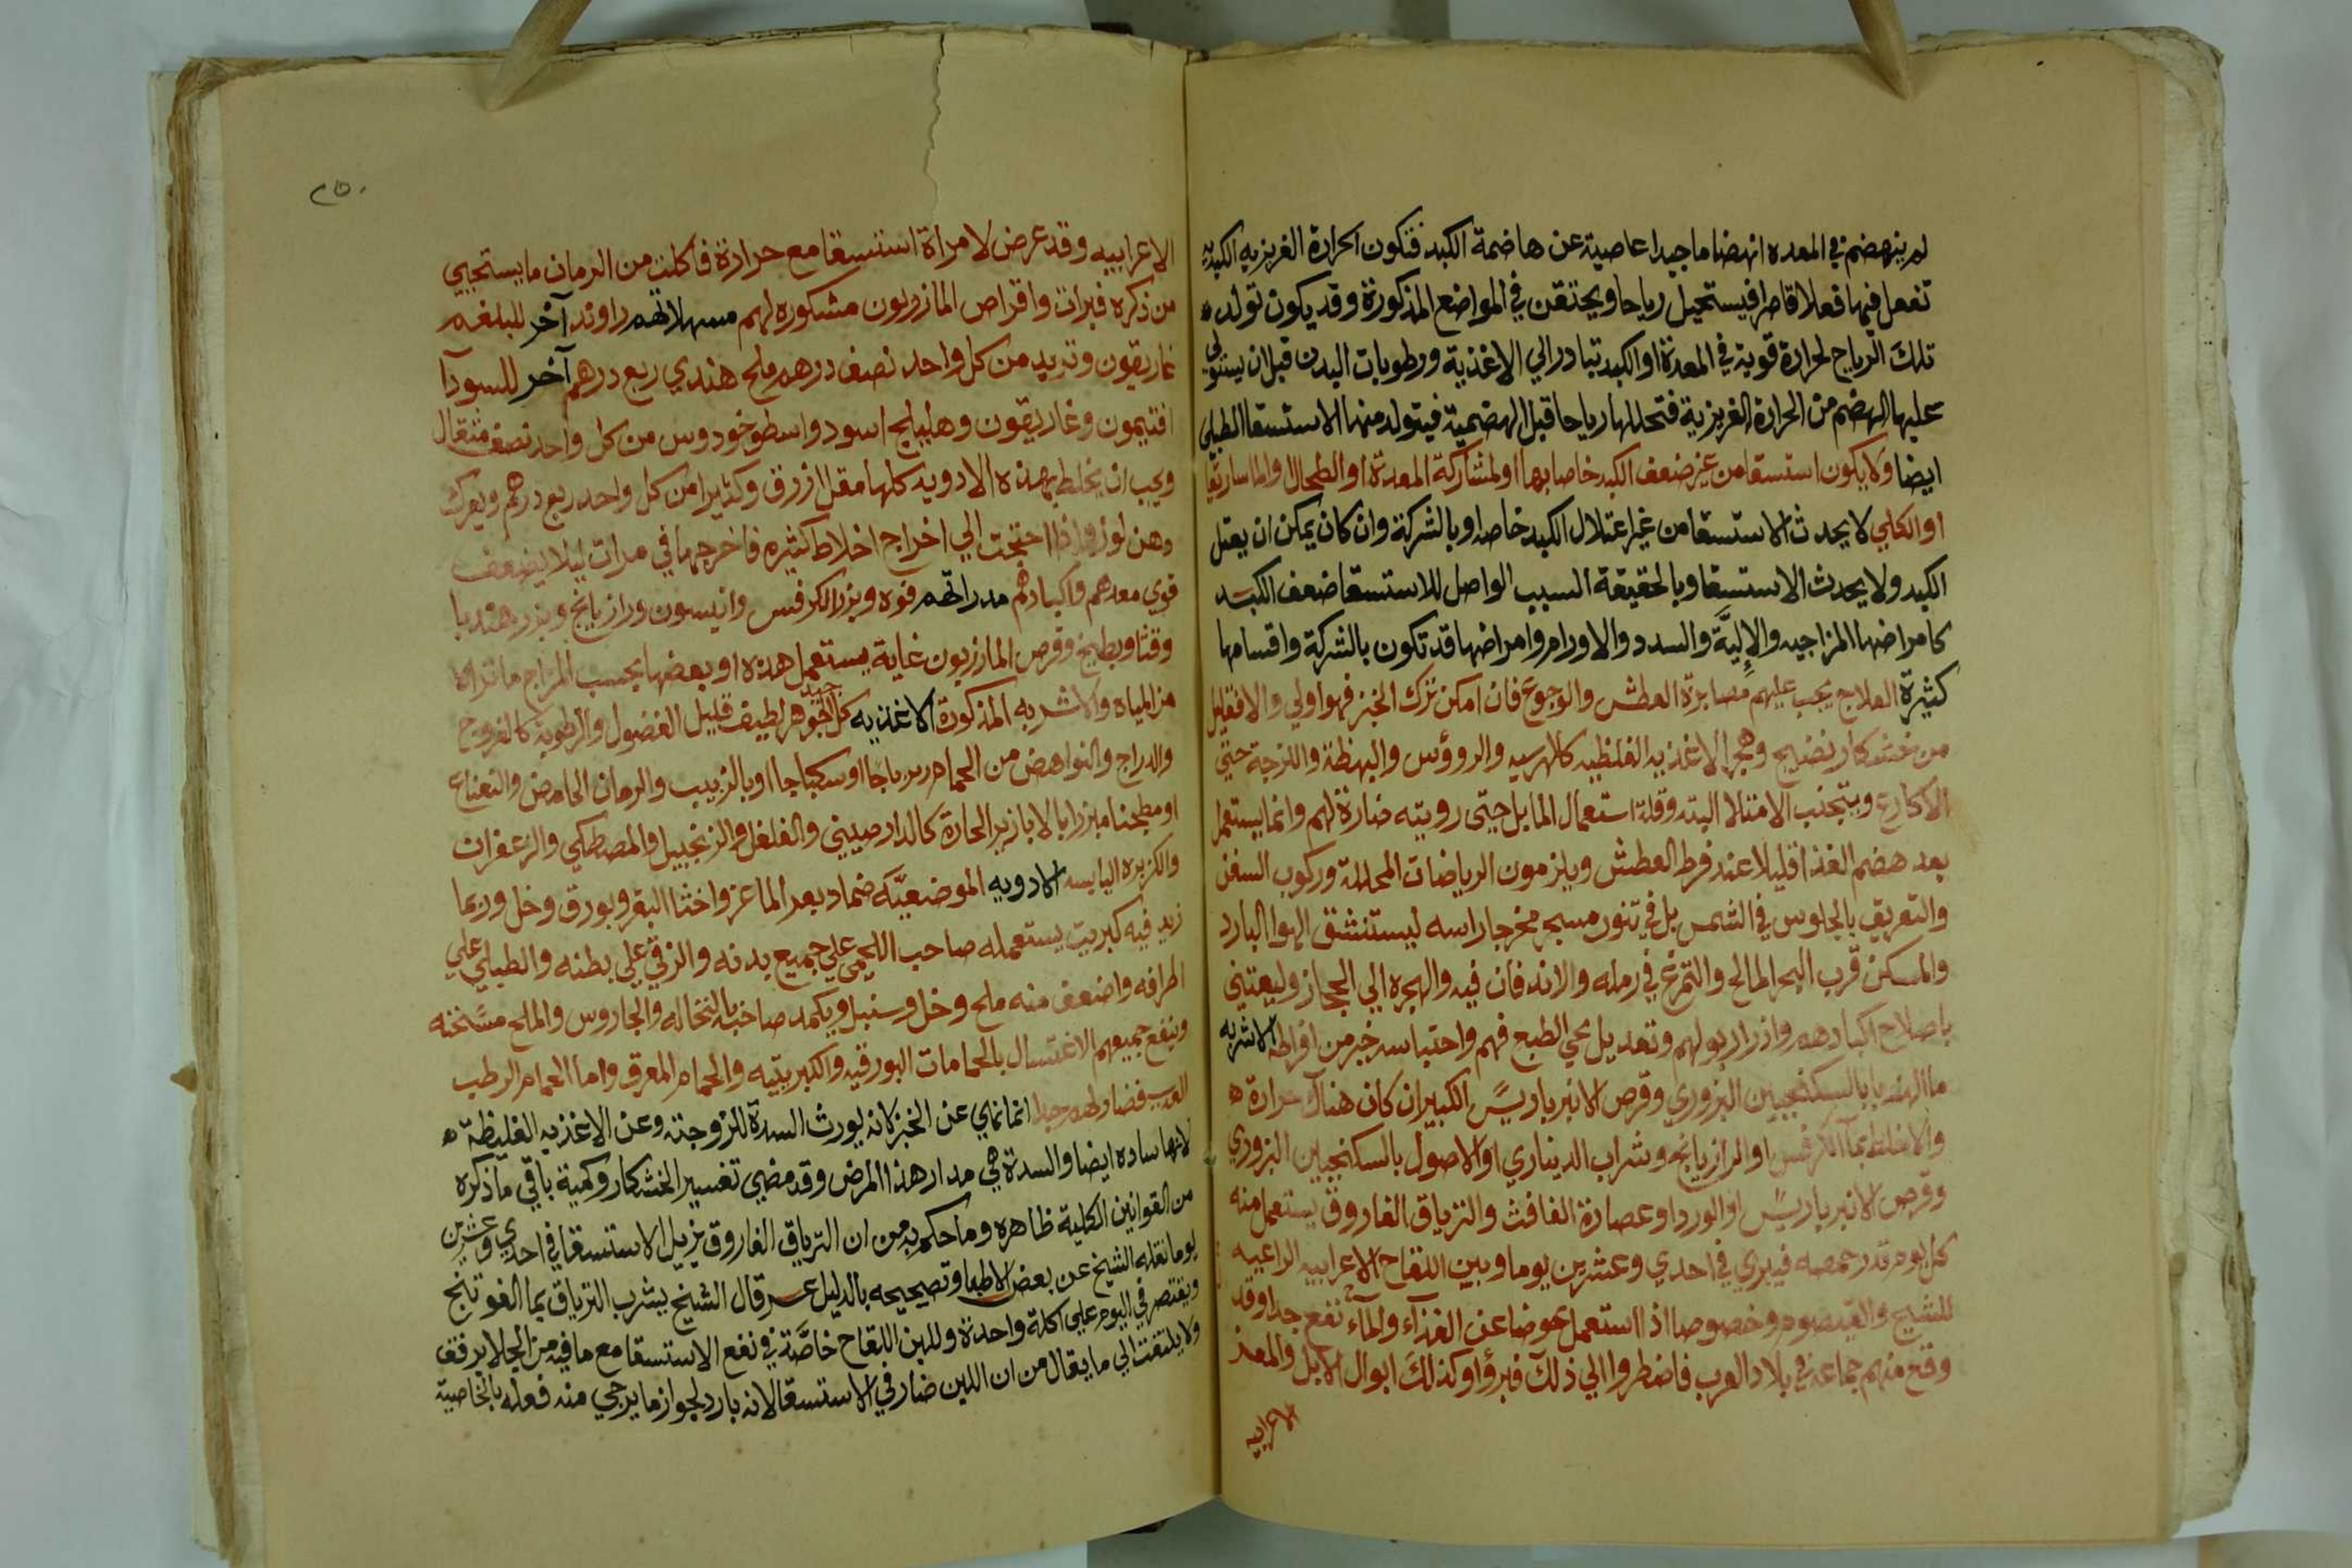 لم ينهضم في المعده انهضاما جيدا عاصية عن هاضمة الكبد فتكون الحرارة الغريزيه الكبديه
تفعل فيها فعلا قاصرا فيستحيل رياحا ويحتقن في المواضع المذكورة وقد يكون تولد
تلك الرياح لحرارة قوية في المعدة او الكبد تبادر الي الاغذية ورطوبات البدن قبل ان يستولي
عليها الهضم من الحرارة الغريزية فتحللها رياحا قبل الهضمية فيتولد منها الاستسقا الطبلي
ايضا ولا يكون استسقا من غير ضعف الكبد خاصا بها او لمشاركة المعدة او الطحال او الماساريقا
او الكلي لا يحدث الاستسقا من غير اعتلال الكبد خاصه او بالشركة وان كان يمكن ان يعتل
الكبد ولا يحدث الاستسقا وبالحقيقة السبب الواصل للاستسقا ضعف الكبد
كامراضها المزاجيه والإليَّة والسدد والاورام وامراضها قد تكون بالشركة واقسامها
كثيرة العلاج يجب عليهم مصابرة العطش والجوع فان امكن ترك الخبز فهو اولي والا فقليل
من خشكار نضيج وهجر الاغذيه الغليظه كالهريسه والرووس والبهطة واللزجة حتي
الاكارع ويتجنب الامتلا البته وقلة استعمال الما بل حتى رويته ضارة لهم وانما يستعمل
بعد هضم الغذا قليلا عند فرط العطش ويلزمون الرياضات المحللة وركوب السفن
والتعريق بالجلوس في الشمس بل في تنور مسجر مخرجا راسه ليستنشق الهوا البارد
والمسكن قرب البحر المالح والتمرغ في رمله والاندفان فيه والهجره الي الحجاز وليعتني
باصلاح اكبادهم وادرار بولهم وتعديل مجي الطبع فهم واحتباسه خير من افراطه الاشربه
ما الهندبا بالسكنجبين البزوري وقرص الانبرباريس الكبير ان كان هناك حرارة
والا خلط بما الكرفس او الرازيانج وشراب الديناري او الاصول بالسكنجبين البزوري
وقرص الانبرباريس او الورد او عصارة الغافث والترياق الفاروق يستعمل منه
كل يوم قدر حمصه فيبري في احدي وعشرين يوما ولبن اللقاح الاعرابيه الراعيه
للشيح والقيصوم وخصوصا اذا استعمل عوضا عن الغذآء والمآء نفع جدا وقد
وقع منهم جماعة في بلاد العرب فاضطروا الي ذلك فبرؤا وكذلك ابوال الابل والمعز
الاعرابيه
٢٥٠
الاعرابيه وقد عرض لامراة استسقا مع حرارة فاكلت من الرمان ما يستحيي
من ذكره فبرات واقراص المازريون مشكوره لهم مسهلاتهم راوند آخر للبلغم
غاريقون وتربد من كل واحد نصف درهم ملح هندي ربع درهم آخر للسودآ
افتيمون وغاريقون وهليلج اسود واسطوخودوس من كل واحد نصف مثقال
ويجب ان يخلط بهذه الادويه كلها مقل ازرق وكثيرا من كل واحد ربع درهم ويعرك
بدهن لوز واذا احتجت الي اخراج اخلاط كثيره فاخرجها في مرات ليلا يضعف
قوي معدهم واكبادهم مدراتهم فوه وبزر الكرفس وانيسون ورازيانج وبزر هندبا
وقثا وبطيخ وقرص المازريون غاية يستعمل هذه او بعضها بحسب المزاج ما تراه
من المياه والاشربه المذكورة الاغذيه كل جيد الجوهر لطيف قليل الفضول والرطوبة كالفروج
والدراج والنواهض من الحمام زيرباجا او سكباجا او بالزبيب والرمان الحامض والنعناع
او مطجنا مبزرا بالابازير الحارة كالدارصيني والفلفل والزنجبيل والمصطكي والزعفران
والكزبره اليابسه الادويه الموضعيَّه ضماد بعر الماعز واخثا البقر وبورق وخل وربما
زيد فيه كبريت يستعمله صاحب اللحمي علي جميع بدنه والزقي علي بطنه والطبلي علي
اطرافه واضعف منه ملح وخل وسنبل ويكمد صاحبه بالنخاله والجاروس والملح مسخنه
وينفع جميعهم الاغتسال بالحمامات البورقيه والكبريتيه والحمام المعرق واما الحمام الرطب
العذب فضار لهم جدا انما نهي عن الخبز لانه يورث السدة للزوجته وعن الاغذيه الغليظة
لانها ساده ايضا والسدة هي مدار هذا المرض وقد مضي تفسير الخشكار وكمية باقي ما ذكره
من القوانين الكلية ظاهره وما حكم به من ان الترياق الفاروق يزيل الاستسقا في احدي وعشرين
يوما نقله الشيخ عن بعض الاطبا وتصحيحه بالدليل عسر قال الشيخ يشرب الترياق بما الفوتنج
ويقتصر في اليوم علي اكلة واحدة وللبن اللقاح خاصَّة في نفع الاستسقا مع ما فيه من الجلا برفق
ولا يلتفت الي ما يقال من ان اللبن ضار في الاستسقا لانه بارد لجواز ما يرجي منه فعله بالخاصية